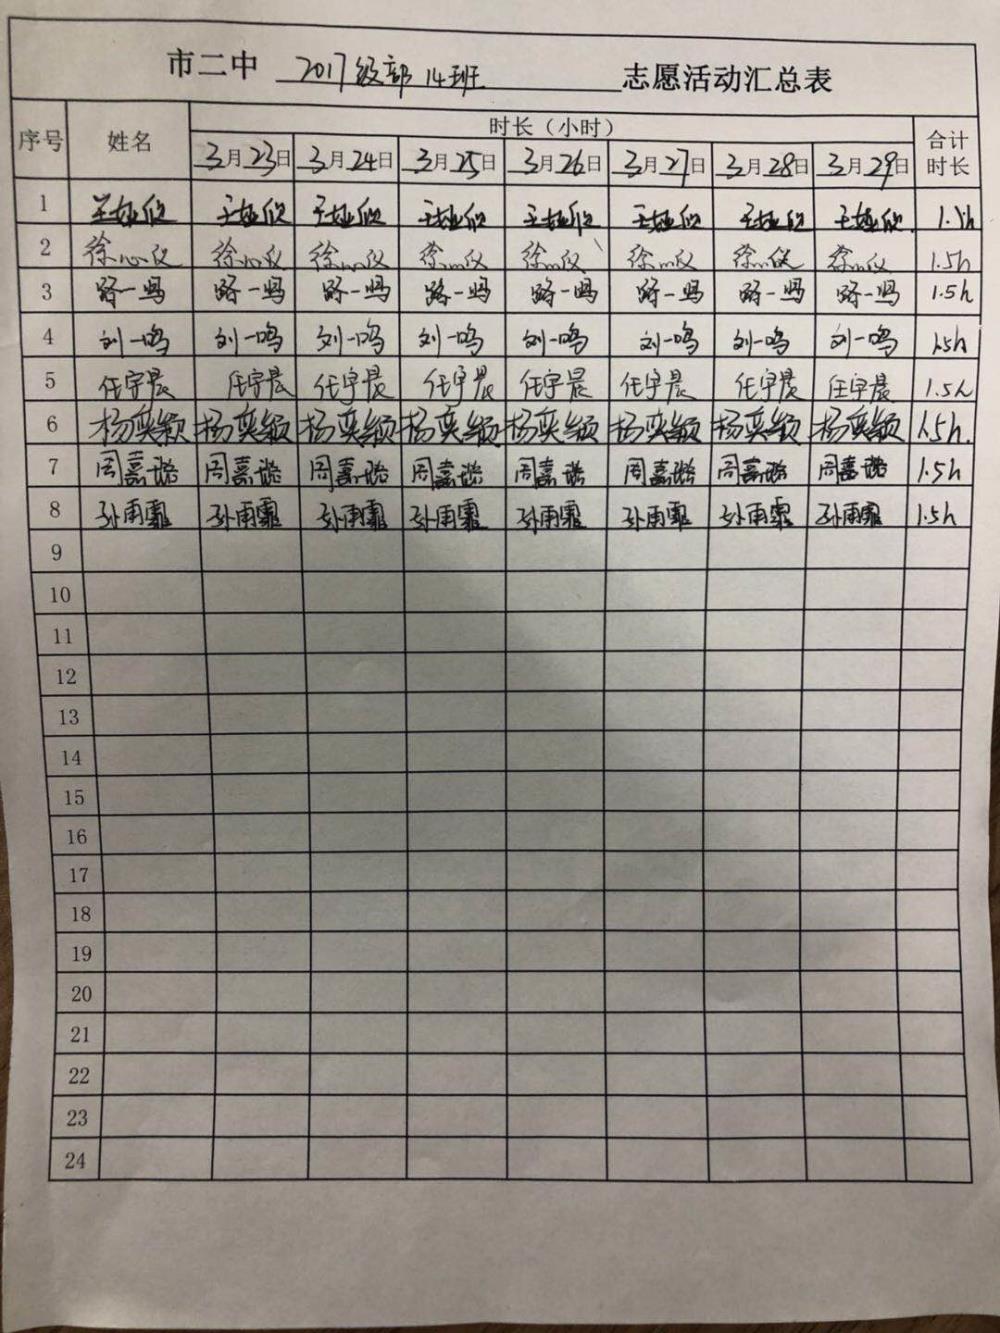 市二中 2017级部 14班 志愿活动汇总表
序号 姓名 时长（小时） 合计时长
3月23日 3月24日 3月25日 3月26日 3月27日 3月28日 3月29日
1 1.5h
2 徐心仪 徐心仪 徐心仪 徐心仪 徐心仪 徐心仪 徐心仪 徐心仪 1.5h
3 路一鸣 路一鸣 路一鸣 路一鸣 路一鸣 路一鸣 路一鸣 路一鸣 1.5h
4 刘一鸣 刘一鸣 刘一鸣 刘一鸣 刘一鸣 刘一鸣 刘一鸣 刘一鸣 1.5h
5 任宇晨 任宇晨 任宇晨 任宇晨 任宇晨 任宇晨 任宇晨 任宇晨 1.5h
6 杨奕颖 杨奕颖 杨奕颖 杨奕颖 杨奕颖 杨奕颖 杨奕颖 杨奕颖 1.5h.
7 周嘉璐 周嘉璐 周嘉璐 周嘉璐 周嘉璐 周嘉璐 周嘉璐 周嘉璐 1.5h
8 孙雨霏 孙雨霏 孙雨霏 孙雨霏 孙雨霏 孙雨霏 孙雨霏 孙雨霏 1.5h
9
10
11
12
13
14
15
16
17
18
19
20
21
22
23
24